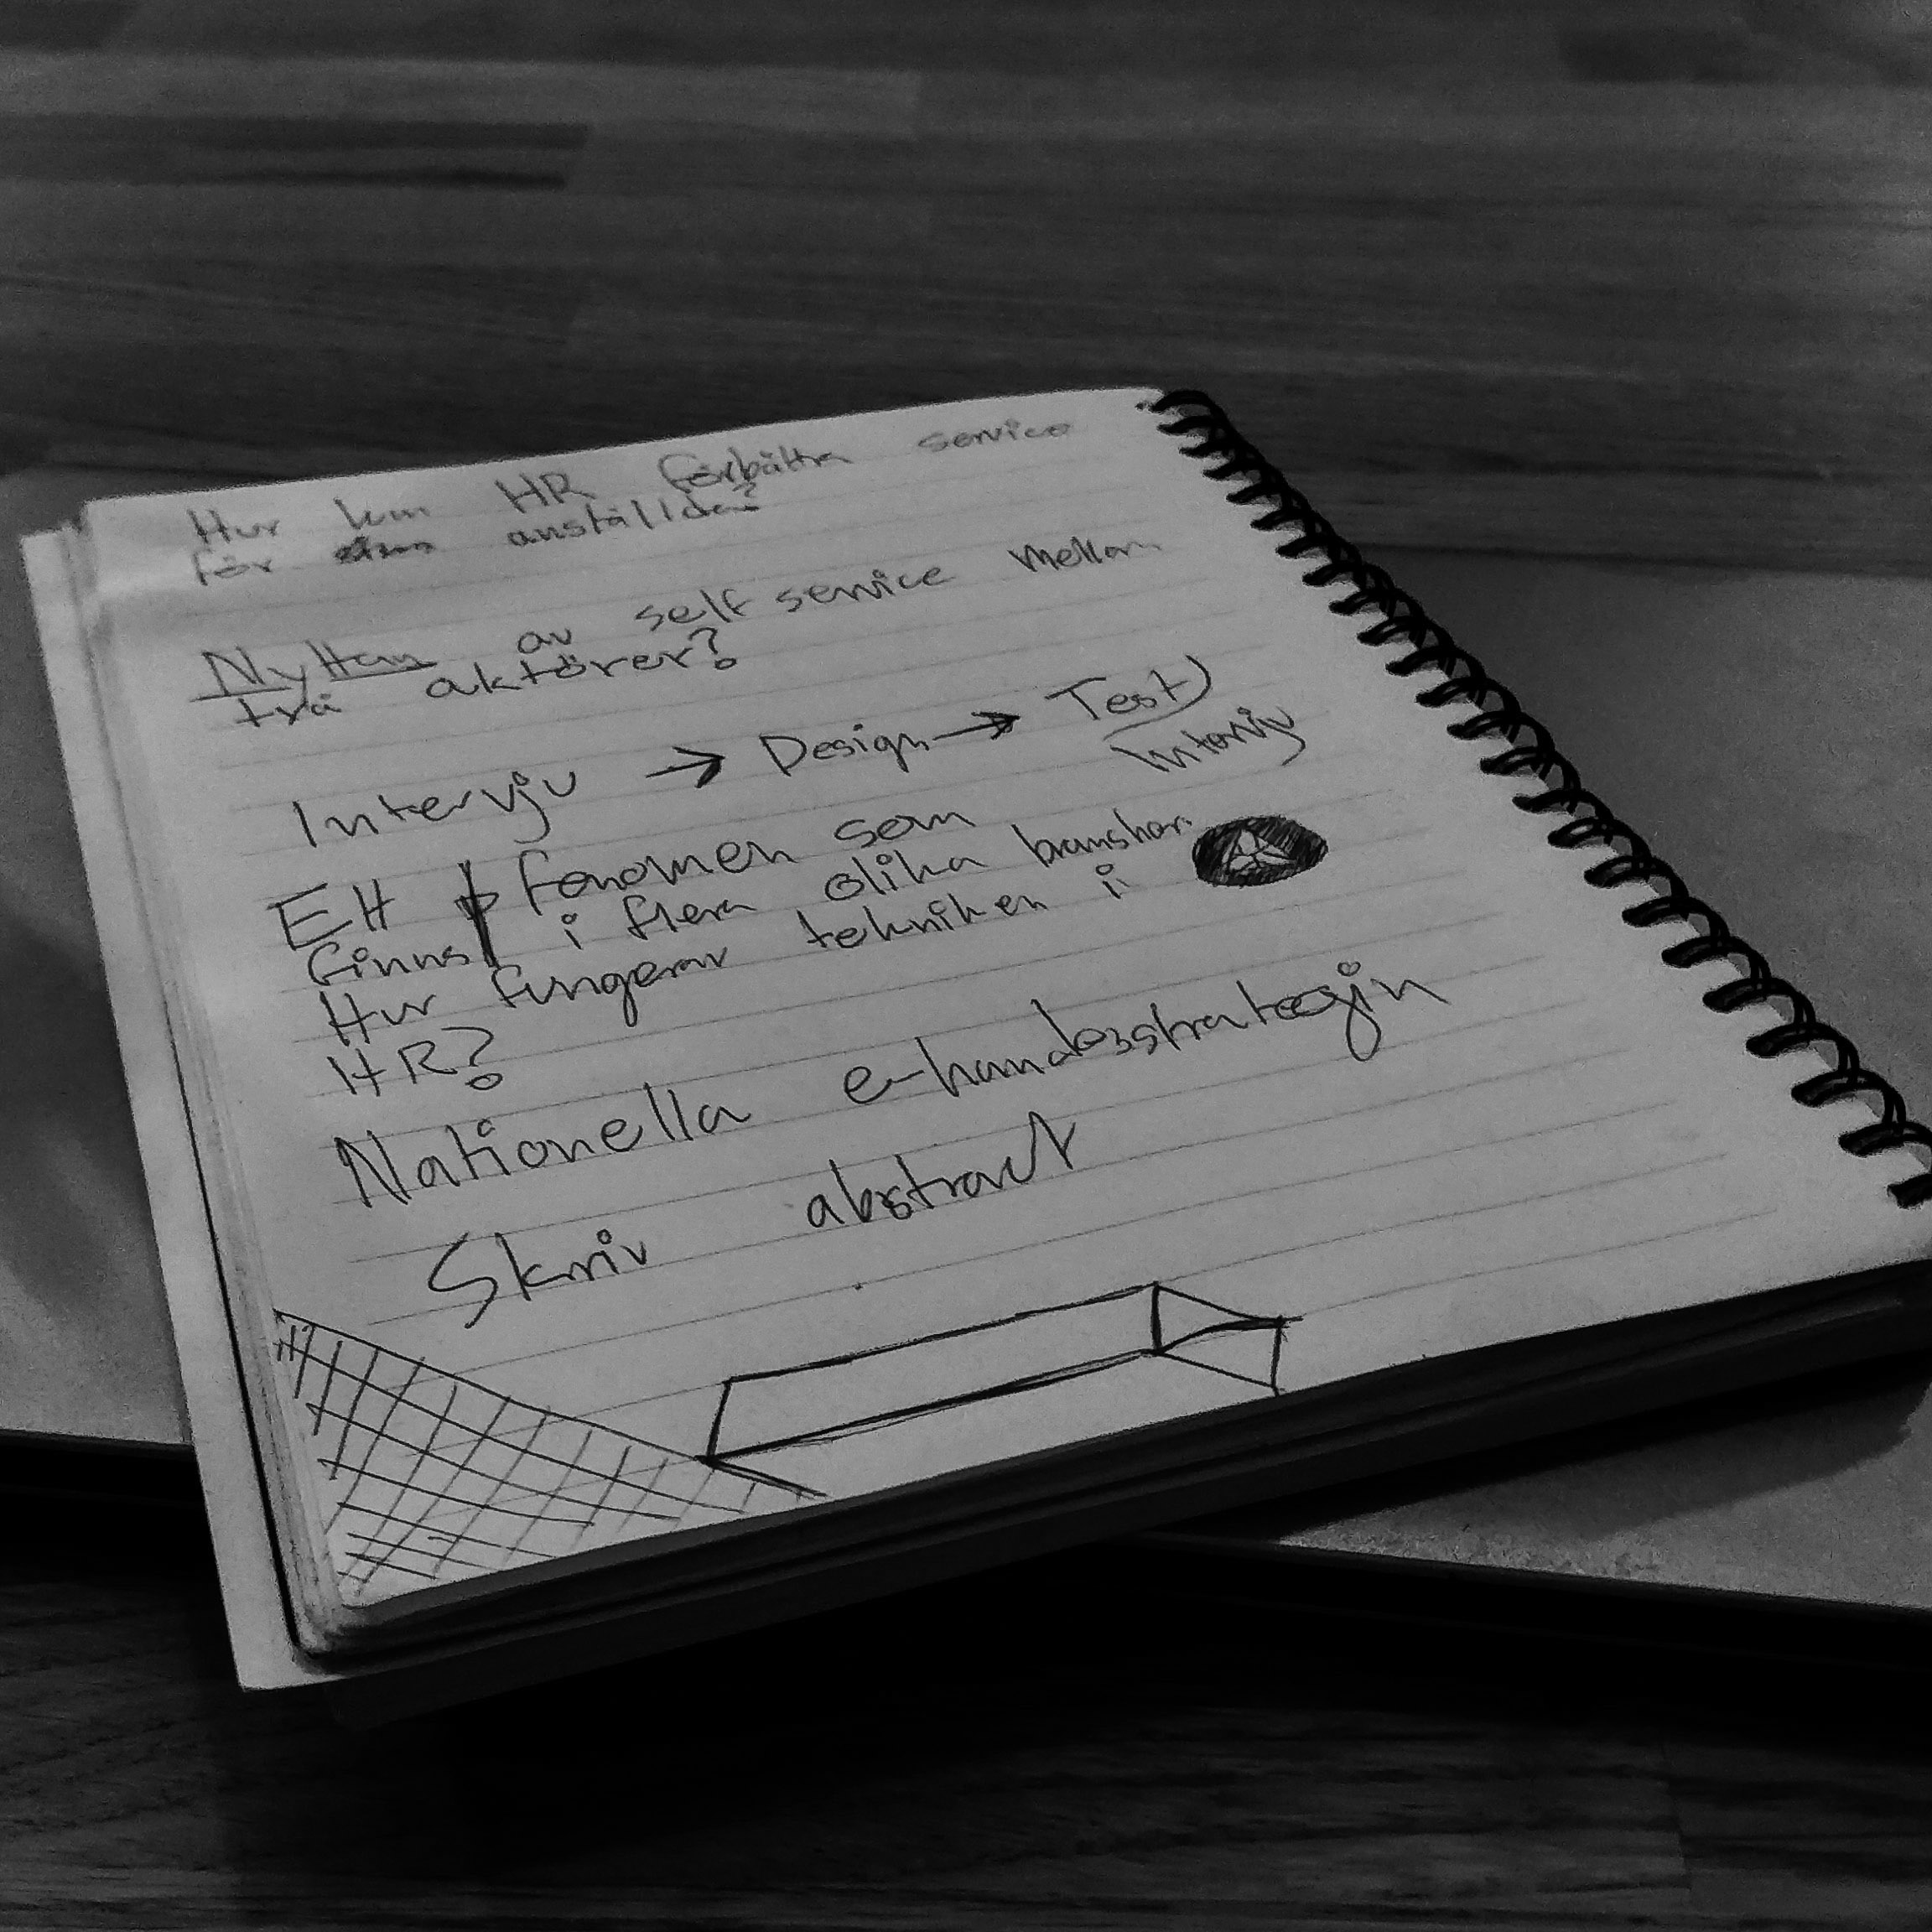 Hur kan HR förbättra service
för anställda?
Nyttan av self service mellan
två aktörer?
Intervju → Design → Test
Intervju
Ett fenomen som
finns i flera olika branscher.
Hur fungerar tekniken i
HR?
Nationella e-handelsstrategin
Skriv abstract